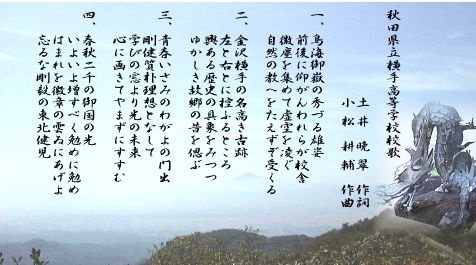 秋田県立横手高等学校校歌
土井 晩翠 作詞
小松 耕輔 作曲
一、鳥海御嶽の秀づる雄姿
前後に仰がんわれらが校舎
微塵を集めて虚空を凌ぐ
自然の教へをたえずぞ受くる
二、金沢横手の名高き古跡
左と右とに控ふるところ
興ある歴史の異象をみつつ
ゆかしき故郷の昔を偲ぶ
三、青春いさみのわがよの門出
剛健質朴理想となして
学びの窓より光の未来
心に画きてやまずにすすむ
四、春秋二千の御国の光
いよいよ増すべく勉めに勉め
ほまれを徽章の雲ゐにあげよ
忘るな剛毅の東北健児